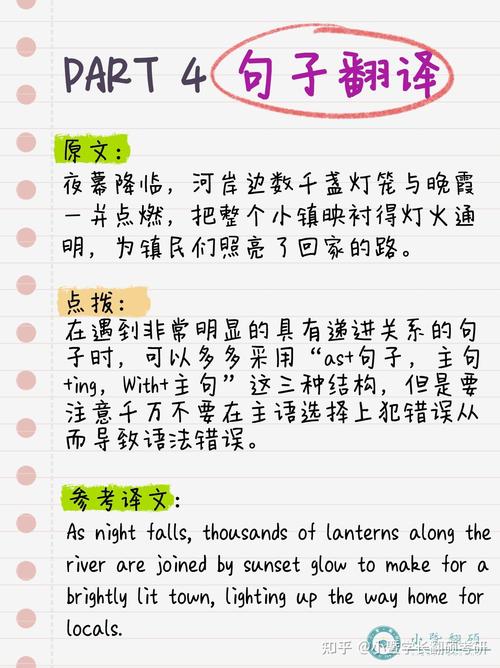 PART 4 句子翻译
原文：
夜幕降临，河岸边数千盏灯笼与晚霞
一并点燃，把整个小镇映衬得灯火通
明，为镇民们照亮了回家的路。
点拨：
在遇到非常明显的具有递进关系的句
子时，可以多多采用“as+句子，主句
+ing，With+主句”这三种结构，但是要
注意千万不要在主语选择上犯错误从
而导致语法错误。
参考译文：
As night falls, thousands of lanterns along the
river are joined by sunset glow to make for a
brightly lit town, lighting up the way home for
locals.
知乎 @小隆学长翻硕考研